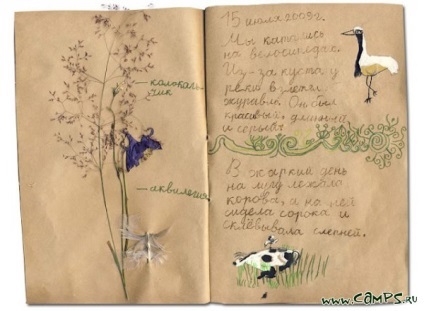 колоколь-
чик
аквилегия
15 июля 2009г.
Мы катались
на велосипедах.
Из-за куста у
реки взлетел
журавль. Он был
красивый, длинный
и серый.
В жаркий день
на лугу лежала
корова, а на ней
сидела сорока и
склёвывала слепней.
www.CAMPS.ru